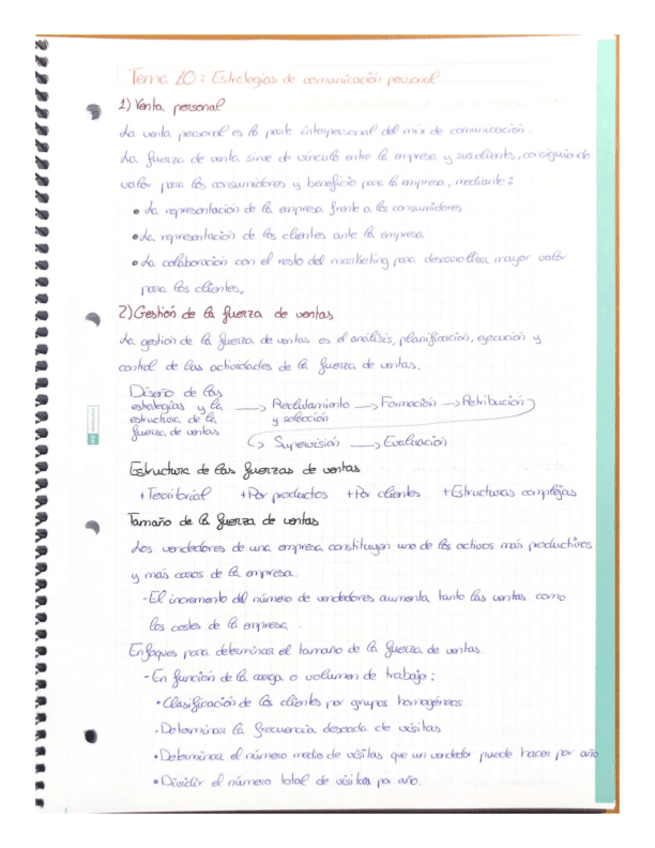 Tema 10: Estrategias de comunicación personal
1) Venta personal
La venta personal es la parte interpersonal del mix de comunicación.
La fuerza de venta sirve de vínculo entre la empresa y sus clientes, consiguiendo
valor para los consumidores y beneficio para la empresa, mediante:
• La representación de la empresa frente a los consumidores
• La representación de los clientes ante la empresa
• La colaboración con el resto del marketing para desarrollar mayor valor
para los clientes.
2) Gestión de la fuerza de ventas
La gestión de la fuerza de ventas es el análisis, planificación, ejecución y
control de las actividades de la fuerza de ventas.
Diseño de las
estrategias y la
estructura de la
fuerza de ventas
→ Reclutamiento
y selección
→ Formación → Retribución
↳ Supervisión → Evaluación
Estructura de las fuerzas de ventas
+ Territorial + Por productos + Por clientes + Estructuras complejas
Tamaño de la fuerza de ventas
Los vendedores de una empresa constituyen uno de los activos más productivos
y más caros de la empresa.
- El incremento del número de vendedores aumenta tanto las ventas como
los costes de la empresa
Enfoques para determinar el tamaño de la fuerza de ventas.
- En función de la carga o volumen de trabajo:
• Clasificación de los clientes por grupos homogéneos
• Determinar la frecuencia deseada de visitas
• Determinar el número medio de visitas que un vendedor puede hacer por año
• Dividir el número total de visitas por año.